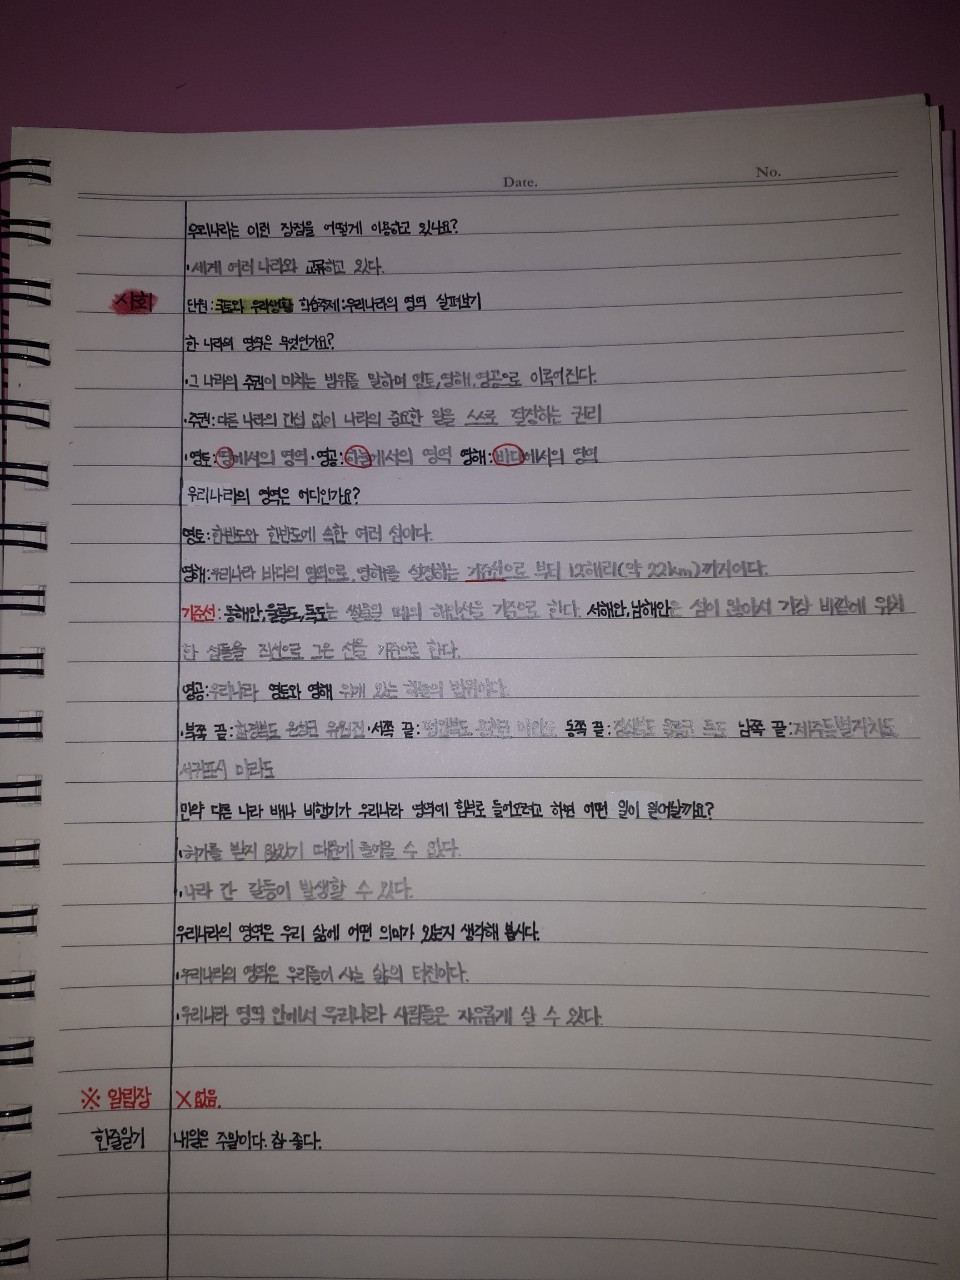 Date. No.
우리나라는 이런 장점을 어떻게 이용하고 있나요?
·세계 여러 나라와 교류하고 있다.
사회 단원: 국토와 우리생활 학습주제: 우리나라의 영역 살펴보기
한 나라의 영역은 무엇인가요?
·그 나라의 주권이 미치는 범위를 말하며 영토, 영해, 영공으로 이루어진다.
·주권: 다른 나라의 간섭 없이 나라의 중요한 일을 스스로 결정하는 권리
·영토: 땅에서의 영역 ·영공: 하늘에서의 영역 영해: 바다에서의 영역
우리나라의 영역은 어디인가요?
영토: 한반도와 한반도에 속한 여러 섬이다.
영해: 우리나라 바다의 영역으로, 영해를 설정하는 기준선으로 부터 12해리(약 22km)까지이다.
기준선: 동해안, 울릉도, 독도는 썰물일 때의 해안선을 기준으로 한다. 서해안, 남해안은 섬이 많아서 가장 바깥에 위치
한 섬들을 직선으로 그은 선을 기준으로 한다.
영공: 우리나라 영토와 영해 위에 있는 하늘의 범위이다.
·북쪽 끝: 함경북도 온성군 유원진 ·서쪽 끝: 평안북도 용천군 동쪽 끝: 경상북도 울릉군 독도 남쪽 끝: 제주특별자치도
서귀포시 마라도
만약 다른 나라 배나 비행기가 우리나라 영역에 함부로 들어오려고 하면 어떤 일이 일어날까요?
·허가를 받지 않았기 때문에 들어올 수 없다.
·나라 간 갈등이 발생할 수 있다.
우리나라의 영역은 우리 삶에 어떤 의미가 있는지 생각해 봅시다.
·우리나라의 영역은 우리들이 사는 삶의 터전이다.
·우리나라 영역 안에서 우리나라 사람들은 자유롭게 살 수 있다.
※ 알림장 X 없음.
한줄일기 내일은 주말이다. 참 좋다.